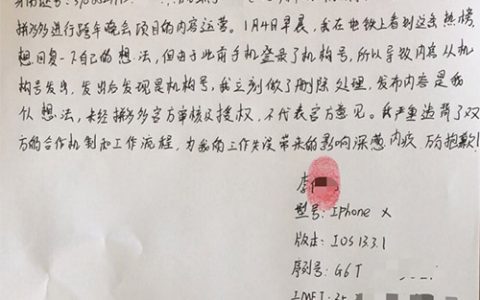 拼多多进行跨年晚会项目的内容运营。1月4日早晨，我在地铁上看到这条热榜
想回复一下自己的想法，但由于此前手机登录了机构号，所以导致内容从机
构号发出，发出后发现是机构号，我立刻做了删除处理，发布内容是我
个人想法，未经拼多多官方审核及授权，不代表官方意见。我严重违背了双
方的合作机制和工作流程，为我的工作失误带来的影响深感内疚，万分抱歉！
李
型号：IPhone X
版本：IOS 13.3.1
序列号：G6T
IMEI：35